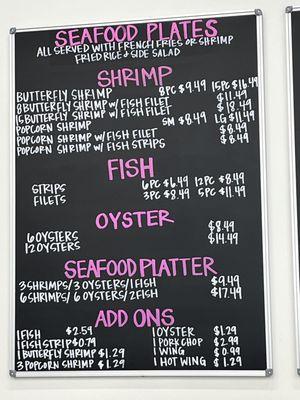 SEAFOOD PLATES
ALL SERVED WITH FRENCH FRIES OR SHRIMP
FRIED RICE & SIDE SALAD
SHRIMP
BUTTERFLY SHRIMP 8PC $9.49 15PC $16.49
8 BUTTERFLY SHRIMP W/ FISH FILET $11.49
15 BUTTERFLY SHRIMP W/ FISH FILET $18.49
POPCORN SHRIMP SM $8.49 LG $11.49
POPCORN SHRIMP W/ FISH FILET $8.49
POPCORN SHRIMP W/ FISH STRIPS $8.49
FISH
STRIPS 6PC $6.49 12PC $8.49
FILETS 3PC $8.49 5PC $11.49
OYSTER
6 OYSTERS $8.49
12 OYSTERS $14.49
SEAFOOD PLATTER
3 SHRIMPS/ 3 OYSTERS/ 1 FISH $9.49
6 SHRIMPS/ 6 OYSTERS/ 2 FISH $17.49
ADD ONS
1 FISH $2.59 1 OYSTER $1.29
1 FISH STRIP $0.79 1 PORK CHOP $2.99
1 BUTTERFLY SHRIMP $1.29 1 WING $0.99
3 POPCORN SHRIMP $1.29 1 HOT WING $1.29